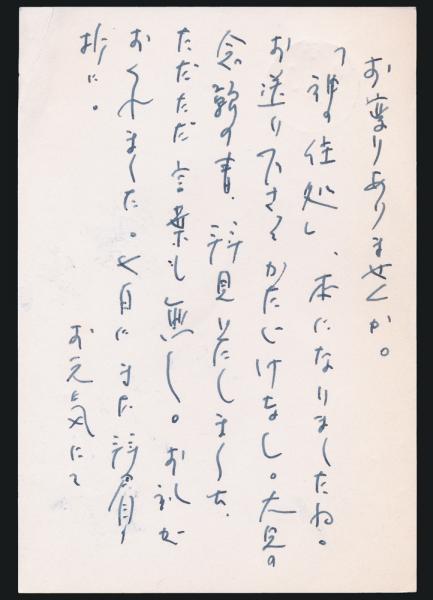 お変りありませんか。
「神の住処」、本になりましたね。
お送り下さってかたじけなし。大兄の
念願の書、拝見いたしました。
ただただ言葉も無し。お礼が
おくれました。七月にまた拝眉の
折に。
お元気にて